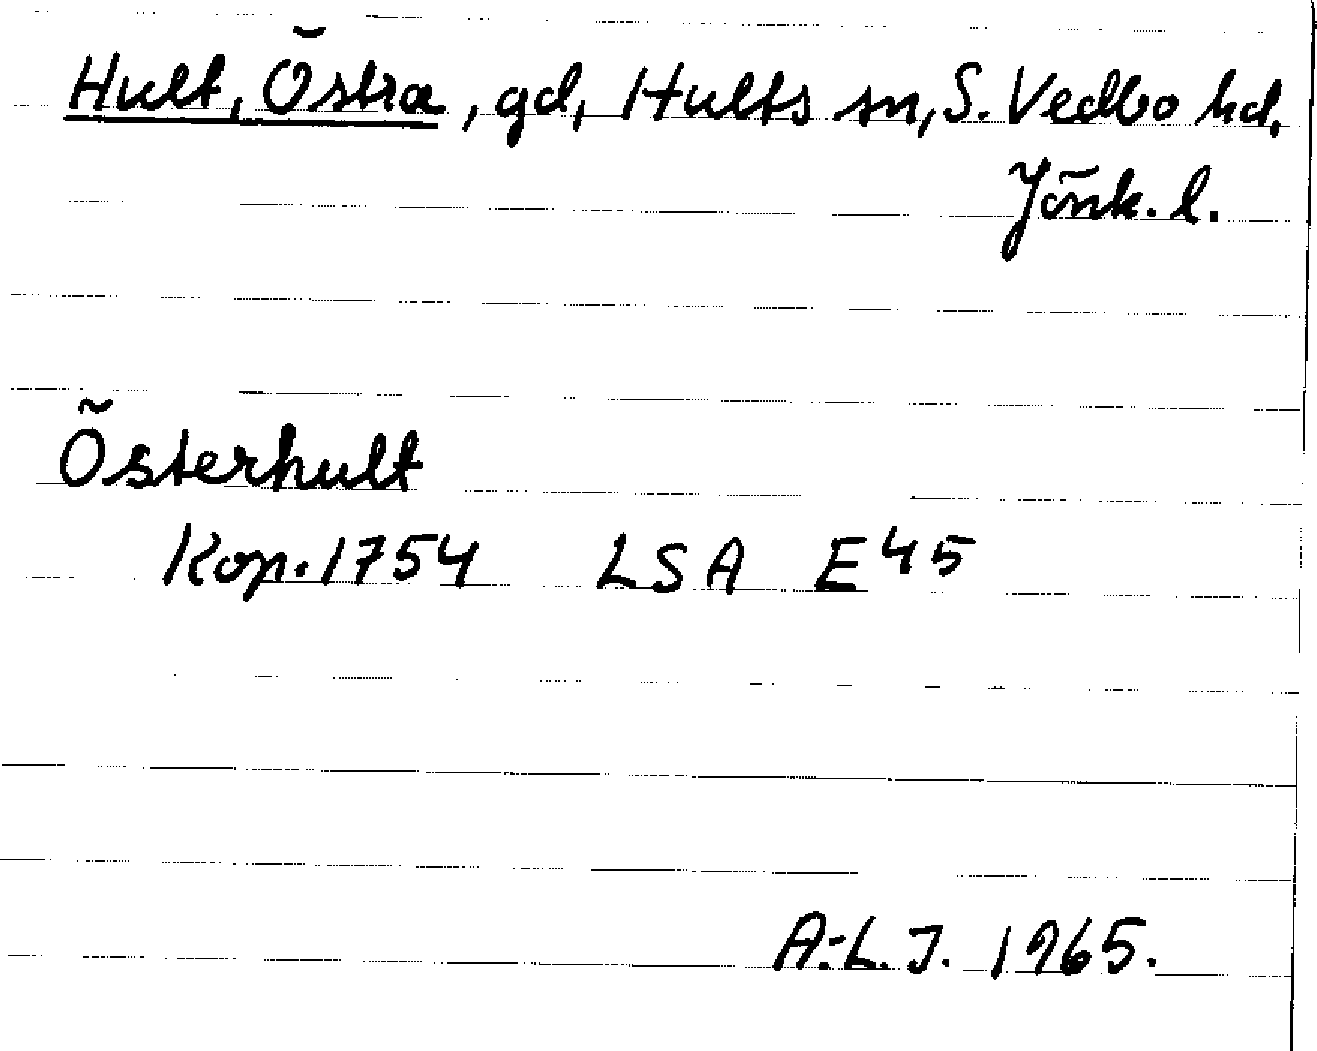 Hult, Östra, gd, Hults sn, S. Vedbo hd,
Jönk. l.
Österhult
Kop. 1754 LSA E45
A.-L. J. 1965.